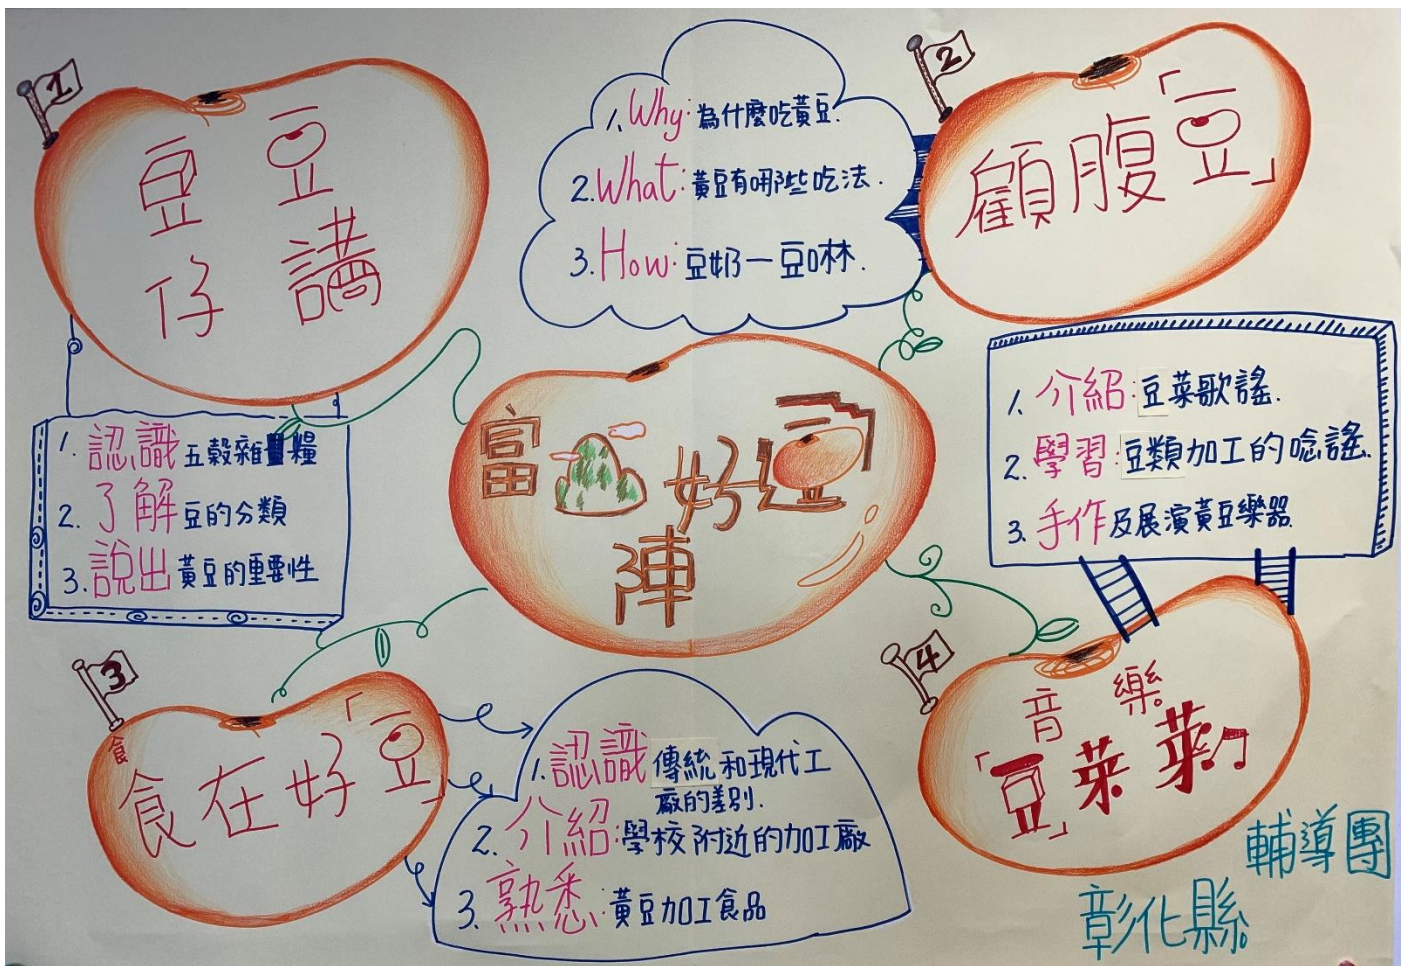 1
豆豆
仔講
1. 認識五穀雜糧
2. 了解豆的分類
3. 說出黃豆的重要性
1. Why:為什麼吃黃豆.
2. What:黃豆有哪些吃法.
3. How:豆奶一豆啉.
2
顧腹「豆」
富 好逗
陣
1. 介紹:豆菜歌謠.
2. 學習:豆類加工的唸謠.
3. 手作及展演黃豆樂器
3
食
食在好「豆」
1. 認識傳統和現代工
廠的差別.
2. 介紹:學校附近的加工廠
3. 熟悉:黃豆加工食品
4
音樂
「豆」菜菜♫
輔導團
彰化縣